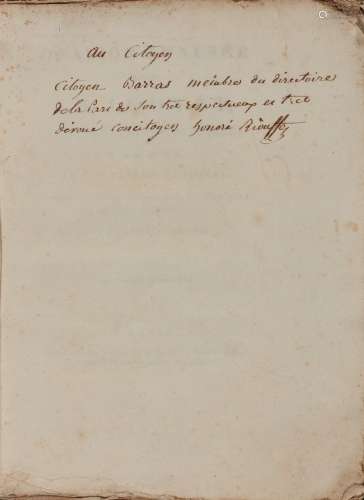 au Citoyen
Citoyen Barras membre du directoire
de la Part de Son tré respectueux et tré
dévoué concitoyen honoré Riouffe